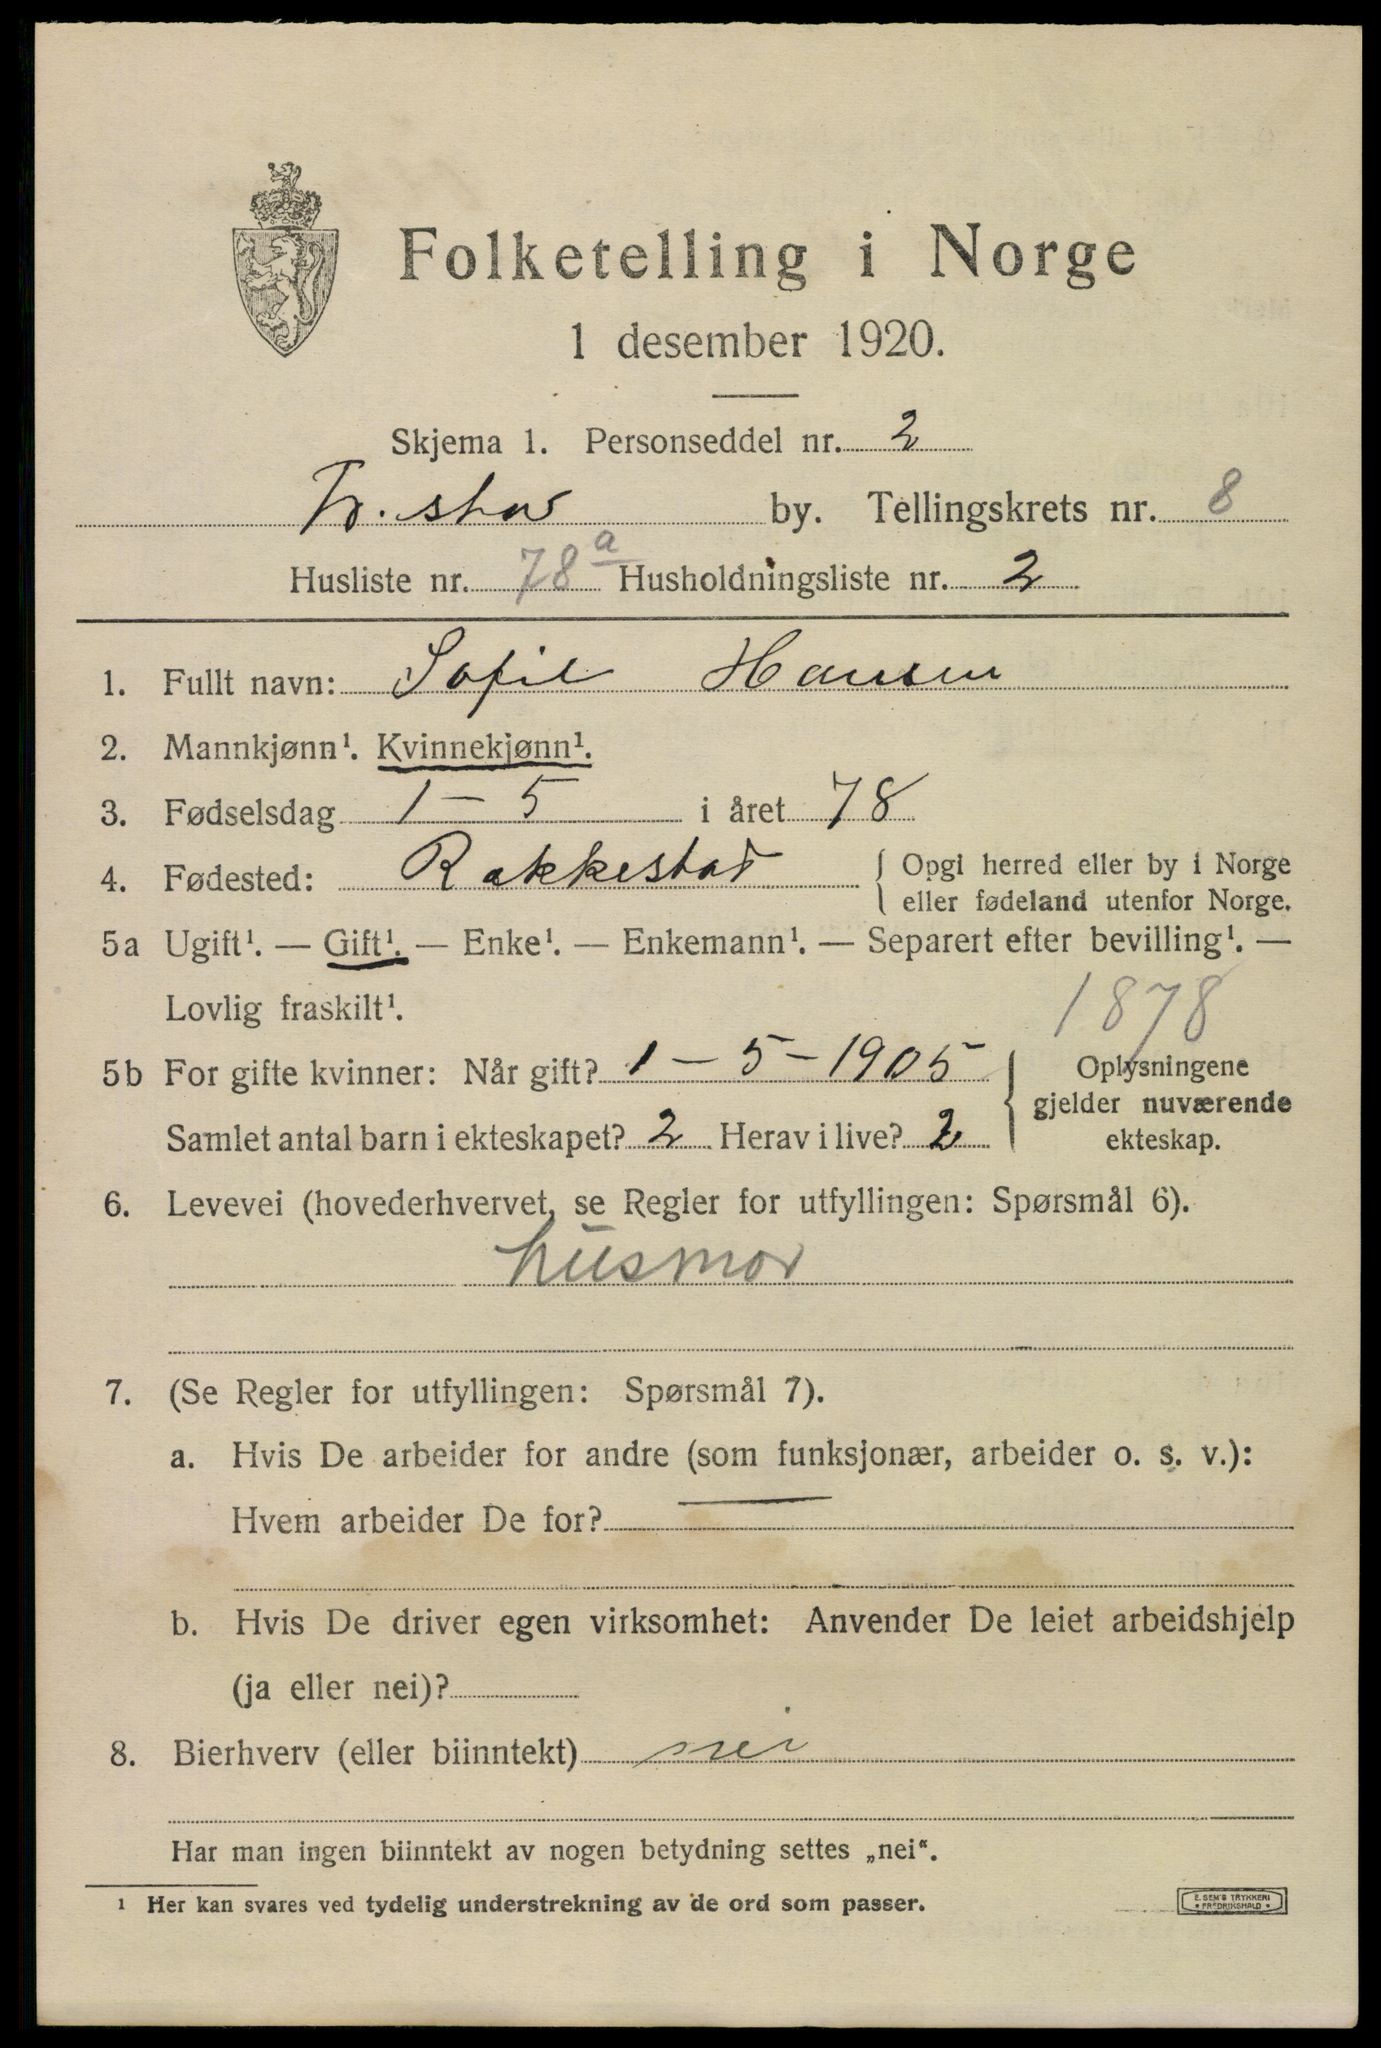 Folketelling i Norge
1 desember 1920.
Skjema 1. Personseddel nr. 2
Fr.stad by. Tellingskrets nr. 8
Husliste nr. 78a Husholdningsliste nr. 2
1. Fullt navn: Sofie Hansen
2. Mannkjønn¹. Kvinnekjønn¹.
3. Fødselsdag 1 – 5 i året 78
4. Fødested: Rakkestad { Opgi herred eller by i Norge
eller fødeland utenfor Norge.
5a Ugift¹. — Gift¹. — Enke¹. — Enkemann¹. — Separert efter bevilling¹. —
Lovlig fraskilt¹.
1878
5b For gifte kvinner: Når gift? 1 – 5 – 1905
Samlet antal barn i ekteskapet? 2 Herav i live? 2
Oplysningene
gjelder nuværende
ekteskap.
6. Levevei (hovederhvervet, se Regler for utfyllingen: Spørsmål 6).
husmor
7. (Se Regler for utfyllingen: Spørsmål 7).
a. Hvis De arbeider for andre (som funksjonær, arbeider o. s. v.):
Hvem arbeider De for? —
b. Hvis De driver egen virksomhet: Anvender De leiet arbeidshjelp
(ja eller nei)?
8. Bierhverv (eller biinntekt) nei
Har man ingen biinntekt av nogen betydning settes „nei“.
¹ Her kan svares ved tydelig understrekning av de ord som passer.
E. SEM'S TRYKKERI
FREDRIKSHALD